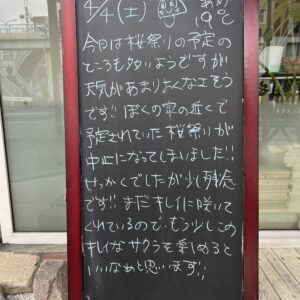 4/4(土)
あめ
9℃
今日は桜祭りの予定の
ところも多いようですが
天気があまりよくなさそう
です!! ぼくの家の近くで
予定されていた桜祭りが
中止になってしまいました!!
せっかくでしたが少し残念
です!! まだキレイに咲いて
くれているので、もう少しこの
キレイなサクラを楽しめると
いいなぁと思います!!